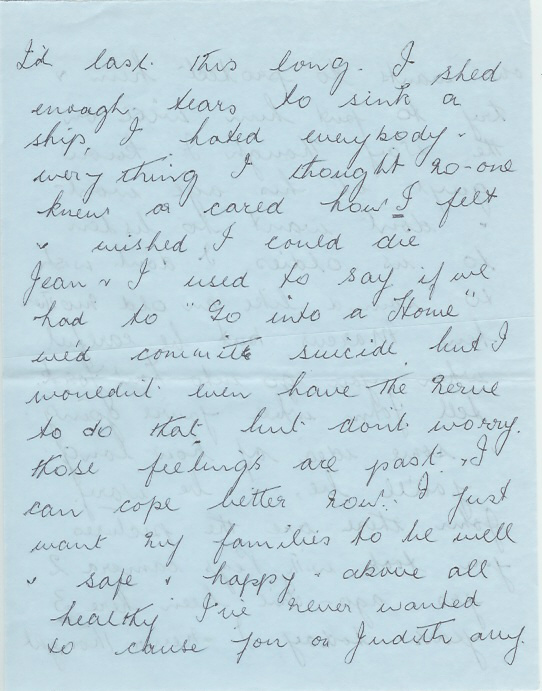 I'd last this long. I shed
enough tears to sink a
ship, I hated everybody &
everything I thought no-one
knew or cared how I felt
& wished I could die
Jean & I used to say if we
had to "Go into a Home"
we'd committ suicide but I
wouldn't even have the nerve
to do that but don't worry.
those feelings are past & I
can cope better now. I just
want my families to be well
& safe & happy & above all
healthy I've never wanted
to cause you or Judith any